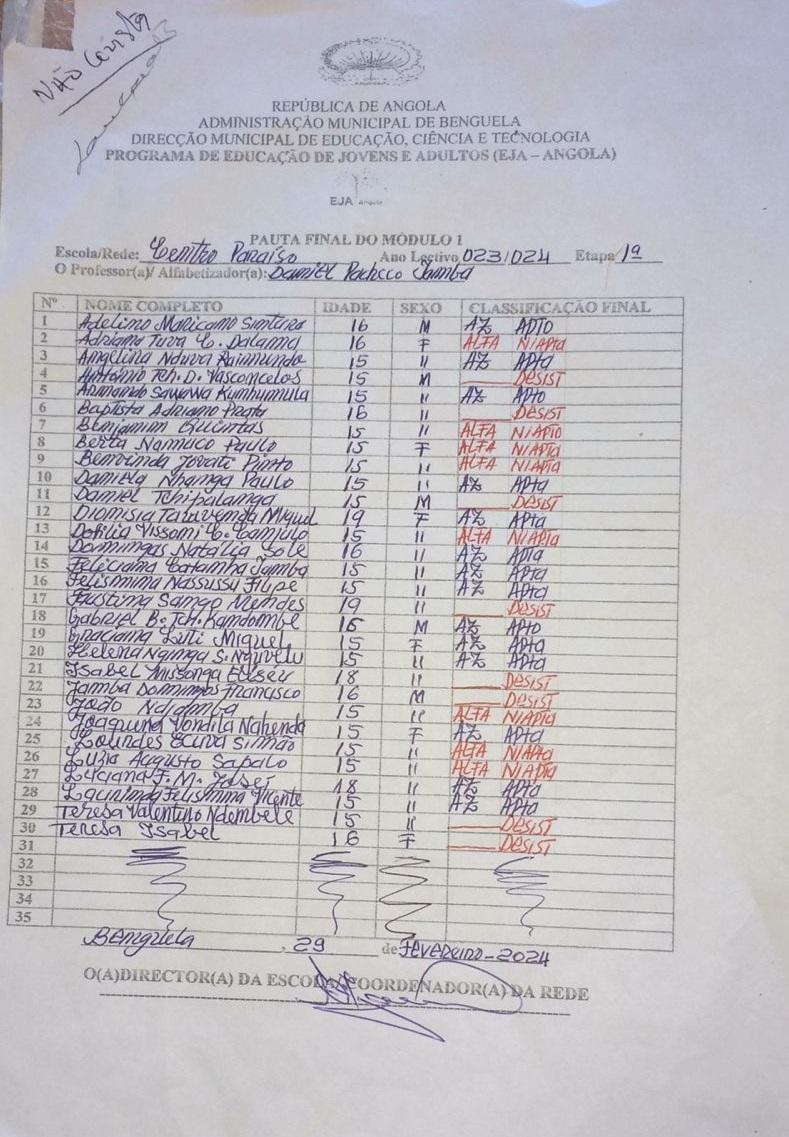 NÃO Consta
REPÚBLICA DE ANGOLA
ADMINISTRAÇÃO MUNICIPAL DE BENGUELA
DIRECÇÃO MUNICIPAL DE EDUCAÇÃO, CIÊNCIA E TECNOLOGIA
PROGRAMA DE EDUCAÇÃO DE JOVENS E ADULTOS (EJA – ANGOLA)
EJA Angola
PAUTA FINAL DO MÓDULO 1
Escola/Rede: Centro Paraíso Ano Lectivo 023/024 Etapa 1ª
O Professor(a)/ Alfabetizador(a): Daniel Pacheco Jamba
Nº NOME COMPLETO IDADE SEXO CLASSIFICAÇÃO FINAL
1 Adelino Maricano 16 M AZ APTO
2 Adriano Tuva C. Dalanna 16 F ALFA N/Apta
3 Angelina Nduva Raimundo 15 II AZ Apta
4 António Tch. D. Vasconcelos 15 M DESIST
5 Armando Sawowa Kunhumula 15 II AZ APTO
6 Baptista Adriano Prata 16 II DESIST
7 Benjamim Quintas 15 II ALFA N/APTO
8 Berta Namuco Paulo 15 F ALFA N/APTA
9 Benvinda Jovati Pinto 15 II ALFA N/APTA
10 Daniela Nhanga Paulo 15 II AZ APta
11 Daniel Tchipalanga 15 M DESIST
12 Dionisia Miguel 19 F AZ APTa
13 Vissomi C. 15 II ALFA N/APTa
14 Domingas Natália Sole 16 II AZ APta
15 Feliciana Catainha Jamba 15 II AZ APta
16 Felismina Nassussu Filipe 15 II AZ APta
17 Faustina Sango Mendes 19 II DESIST
18 Gabriel B. Tch. Kandombe 16 M AZ APTO
19 Graciana Luti Miguel 15 F AZ APta
20 Helena Nginga S. 15 II AZ APta
21 Isabel Missonga 18 II DESIST
22 Jamba Domingos Francisco 16 M DESIST
23 João Ndjamba 15 II ALFA N/APTa
24 Joaquina Vondila Nahenda 15 F AZ APta
25 Lourdes Simão 15 II ALFA N/APta
26 Luzia Augusto Sapalo 15 II ALFA N/APta
27 Luciana F. M. José 18 II AZ APta
28 Felismina Vicente 15 II AZ APta
29 Teresa Valentino Ndembele 15 II DESIST
30 Teresa Isabel 16 F DESIST
31
32
33
34
35
Benguela, 29 de FEVEREIRO - 2024
O(A)DIRECTOR(A) DA ESCOLA/COORDENADOR(A) DA REDE